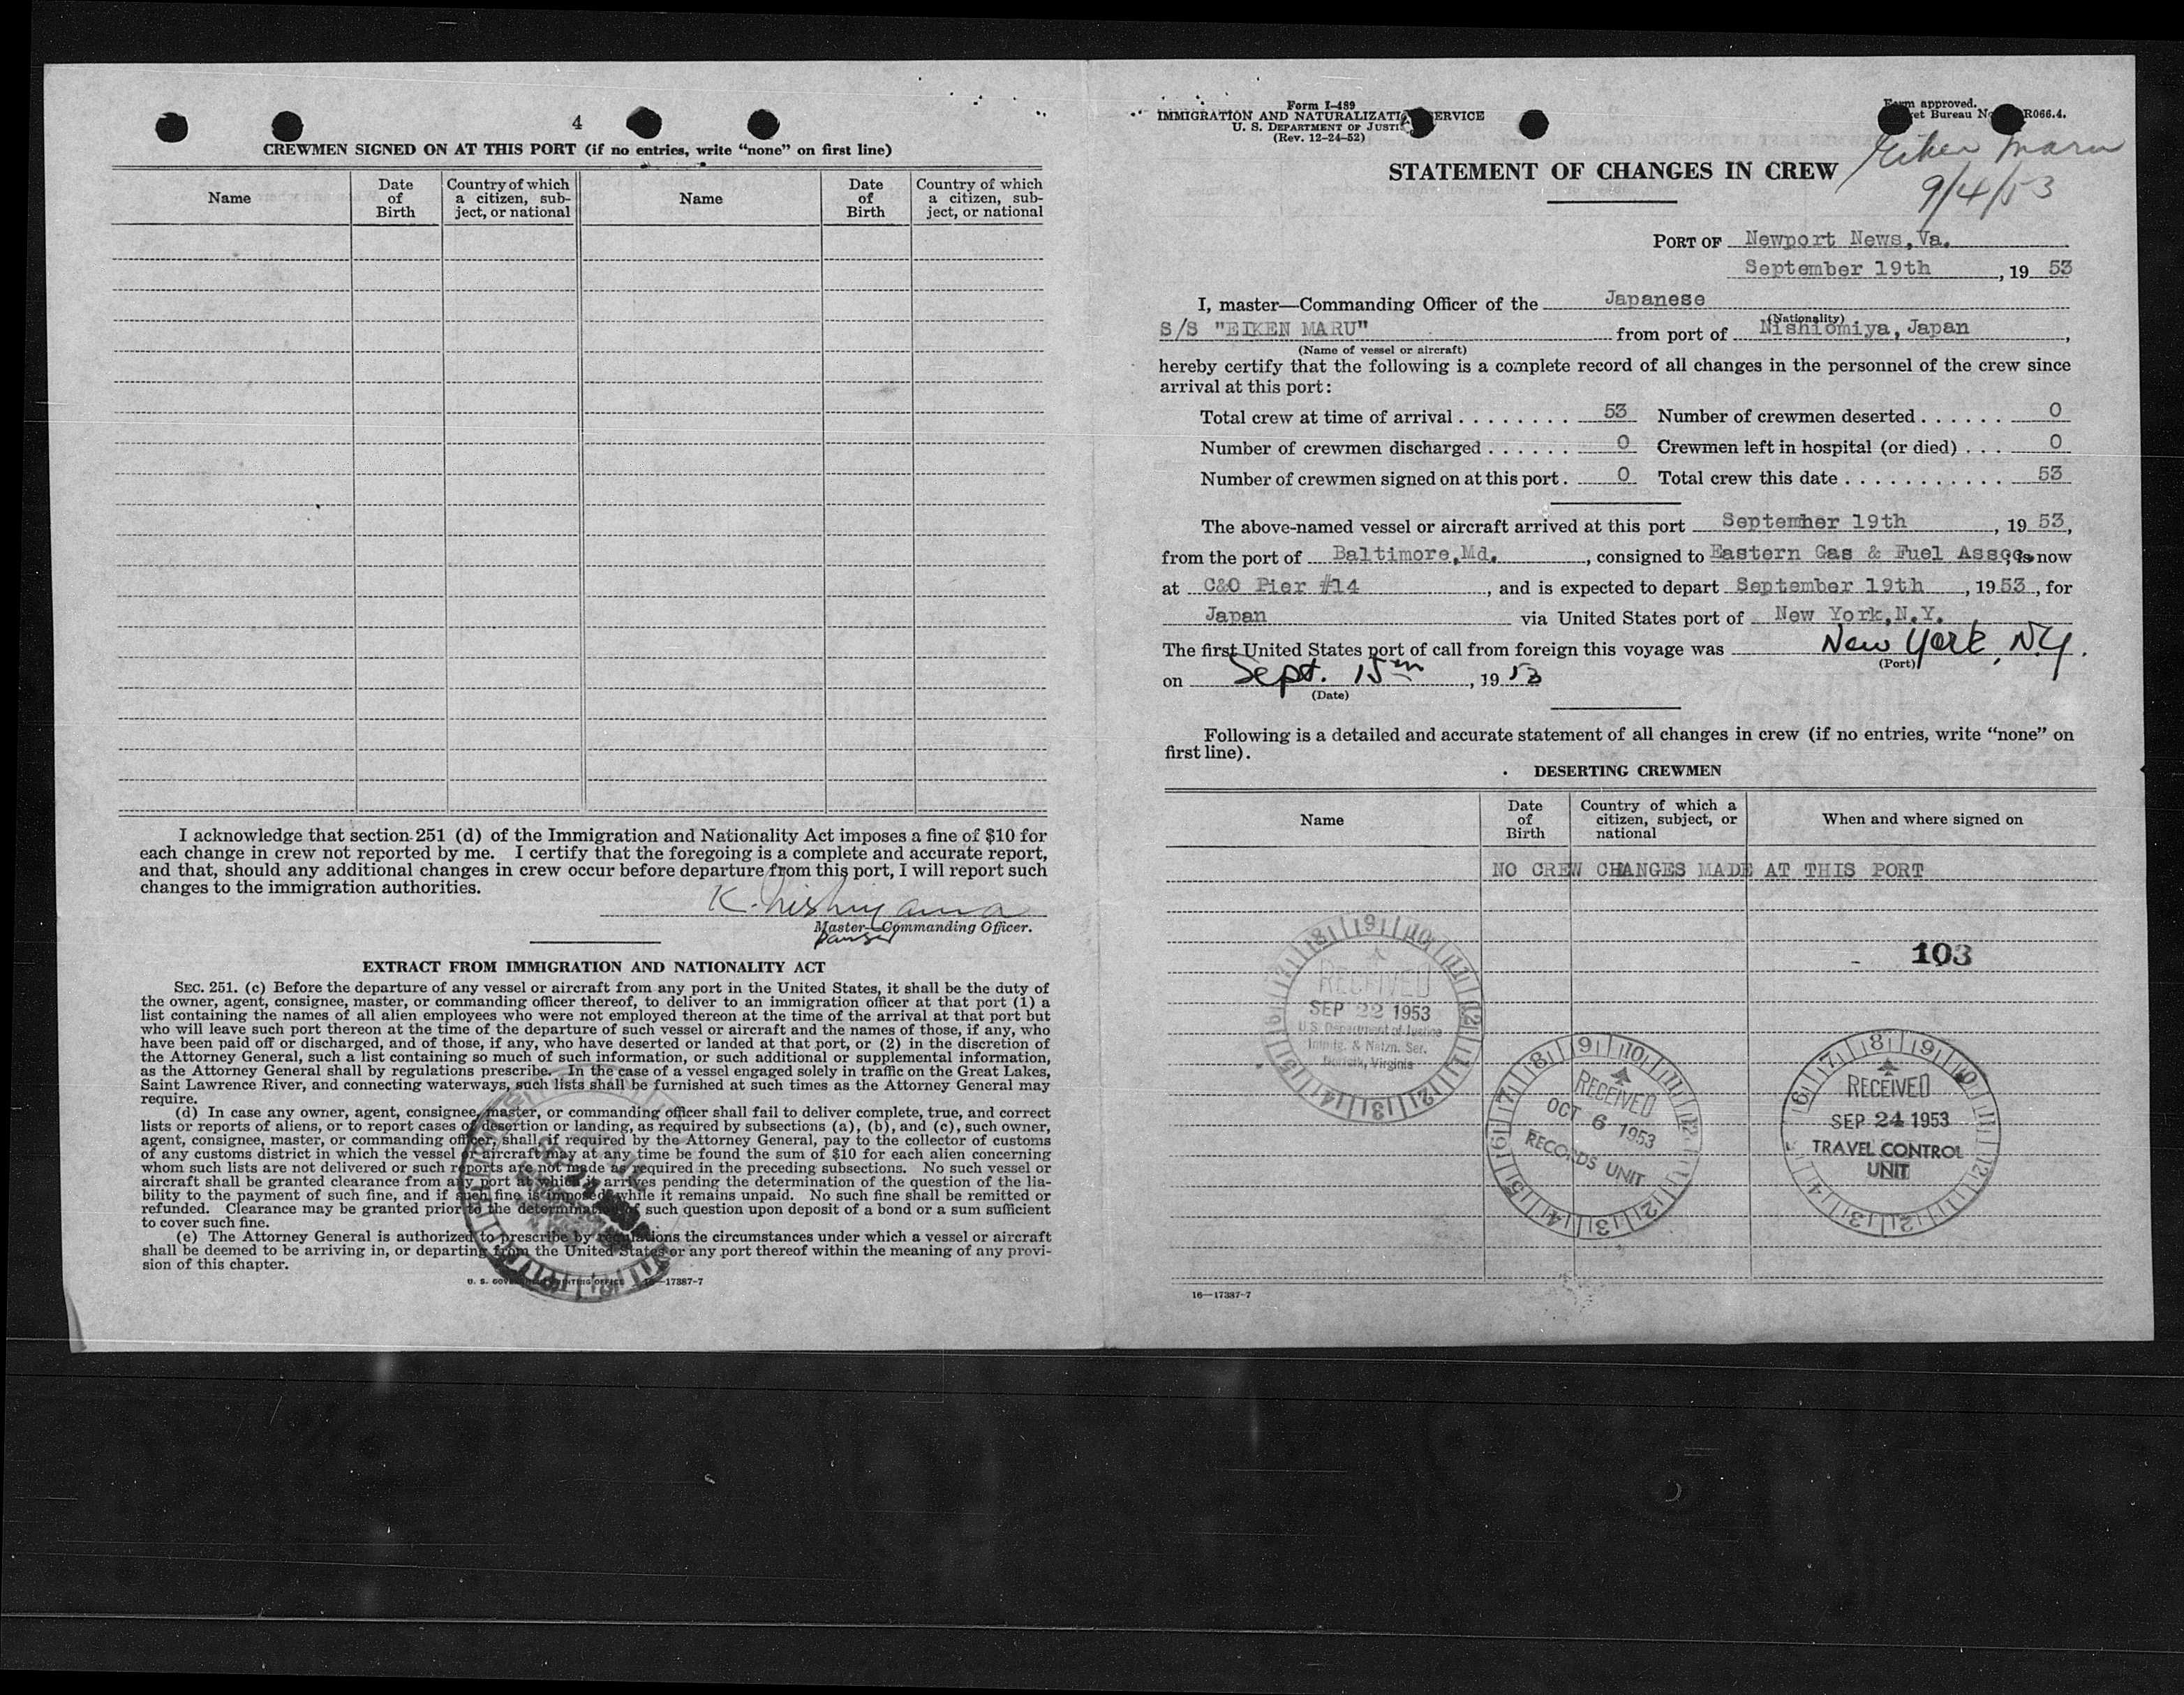 4
CREWMEN SIGNED ON AT THIS PORT (if no entries, write “none” on first line)
Name
Date of Birth
Country of which a citizen, subject, or national
Name
Date of Birth
Country of which a citizen, subject, or national
I acknowledge that section 251 (d) of the Immigration and Nationality Act imposes a fine of $10 for
each change in crew not reported by me. I certify that the foregoing is a complete and accurate report,
and that, should any additional changes in crew occur before departure from this port, I will report such
changes to the immigration authorities.
K. Nishiyama
Master—Commanding Officer.
EXTRACT FROM IMMIGRATION AND NATIONALITY ACT
SEC. 251. (c) Before the departure of any vessel or aircraft from any port in the United States, it shall be the duty of
the owner, agent, consignee, master, or commanding officer thereof, to deliver to an immigration officer at that port (1) a
list containing the names of all alien employees who were not employed thereon at the time of the arrival at that port but
who will leave such port thereon at the time of the departure of such vessel or aircraft and the names of those, if any, who
have been paid off or discharged, and of those, if any, who have deserted or landed at that port, or (2) in the discretion of
the Attorney General, such a list containing so much of such information, or such additional or supplemental information,
as the Attorney General shall by regulations prescribe. In the case of a vessel engaged solely in traffic on the Great Lakes,
Saint Lawrence River, and connecting waterways, such lists shall be furnished at such times as the Attorney General may
require.
(d) In case any owner, agent, consignee, master, or commanding officer shall fail to deliver complete, true, and correct
lists or reports of aliens, or to report cases of desertion or landing, as required by subsections (a), (b), and (c), such owner,
agent, consignee, master, or commanding officer, shall, if required by the Attorney General, pay to the collector of customs
of any customs district in which the vessel or aircraft may at any time be found the sum of $10 for each alien concerning
whom such lists are not delivered or such reports are not made as required in the preceding subsections. No such vessel or
aircraft shall be granted clearance from any port at which it arrives pending the determination of the question of the lia-
bility to the payment of such fine, and if such fine is imposed, while it remains unpaid. No such fine shall be remitted or
refunded. Clearance may be granted prior to the determination of such question upon deposit of a bond or a sum sufficient
to cover such fine.
(e) The Attorney General is authorized to prescribe by regulations the circumstances under which a vessel or aircraft
shall be deemed to be arriving in, or departing from the United States or any port thereof within the meaning of any provi-
sion of this chapter.
U. S. GOVERNMENT PRINTING OFFICE 16—17387-7
Form I-489
IMMIGRATION AND NATURALIZATION SERVICE
U. S. DEPARTMENT OF JUSTICE
(Rev. 12-24-52)
Form approved.
Bureau No. R066.4.
Eiken Maru
9/4/53
STATEMENT OF CHANGES IN CREW
PORT OF Newport News,Va.
September 19th, 19 53
I, master—Commanding Officer of the Japanese
(Nationality)
S/S "EIKEN MARU" from port of Nishiomiya, Japan,
(Name of vessel or aircraft)
hereby certify that the following is a complete record of all changes in the personnel of the crew since
arrival at this port:
Total crew at time of arrival . . . . . . . . 53 Number of crewmen deserted . . . . . . 0
Number of crewmen discharged . . . . . . 0 Crewmen left in hospital (or died) . . . 0
Number of crewmen signed on at this port . 0 Total crew this date . . . . . . . . . . . 53
The above-named vessel or aircraft arrived at this port September 19th, 19 53,
from the port of Baltimore,Md., consigned to Eastern Gas & Fuel Assoc, is now
at C&O Pier #14, and is expected to depart September 19th, 19 53, for
Japan via United States port of New York,N.Y.
The first United States port of call from foreign this voyage was New York, N.Y.
(Port)
on Sept. 15th, 19 53
(Date)
Following is a detailed and accurate statement of all changes in crew (if no entries, write “none” on
first line).
DESERTING CREWMEN
Name
Date of Birth
Country of which a citizen, subject, or national
When and where signed on
NO CREW CHANGES MADE AT THIS PORT
103
RECEIVED
SEP 22 1953
U.S. Department of Justice
Immig. & Natzn. Ser.
Norfolk, Virginia
RECEIVED
OCT 6 1953
RECORDS UNIT
RECEIVED
SEP 24 1953
TRAVEL CONTROL
UNIT
16—17387-7